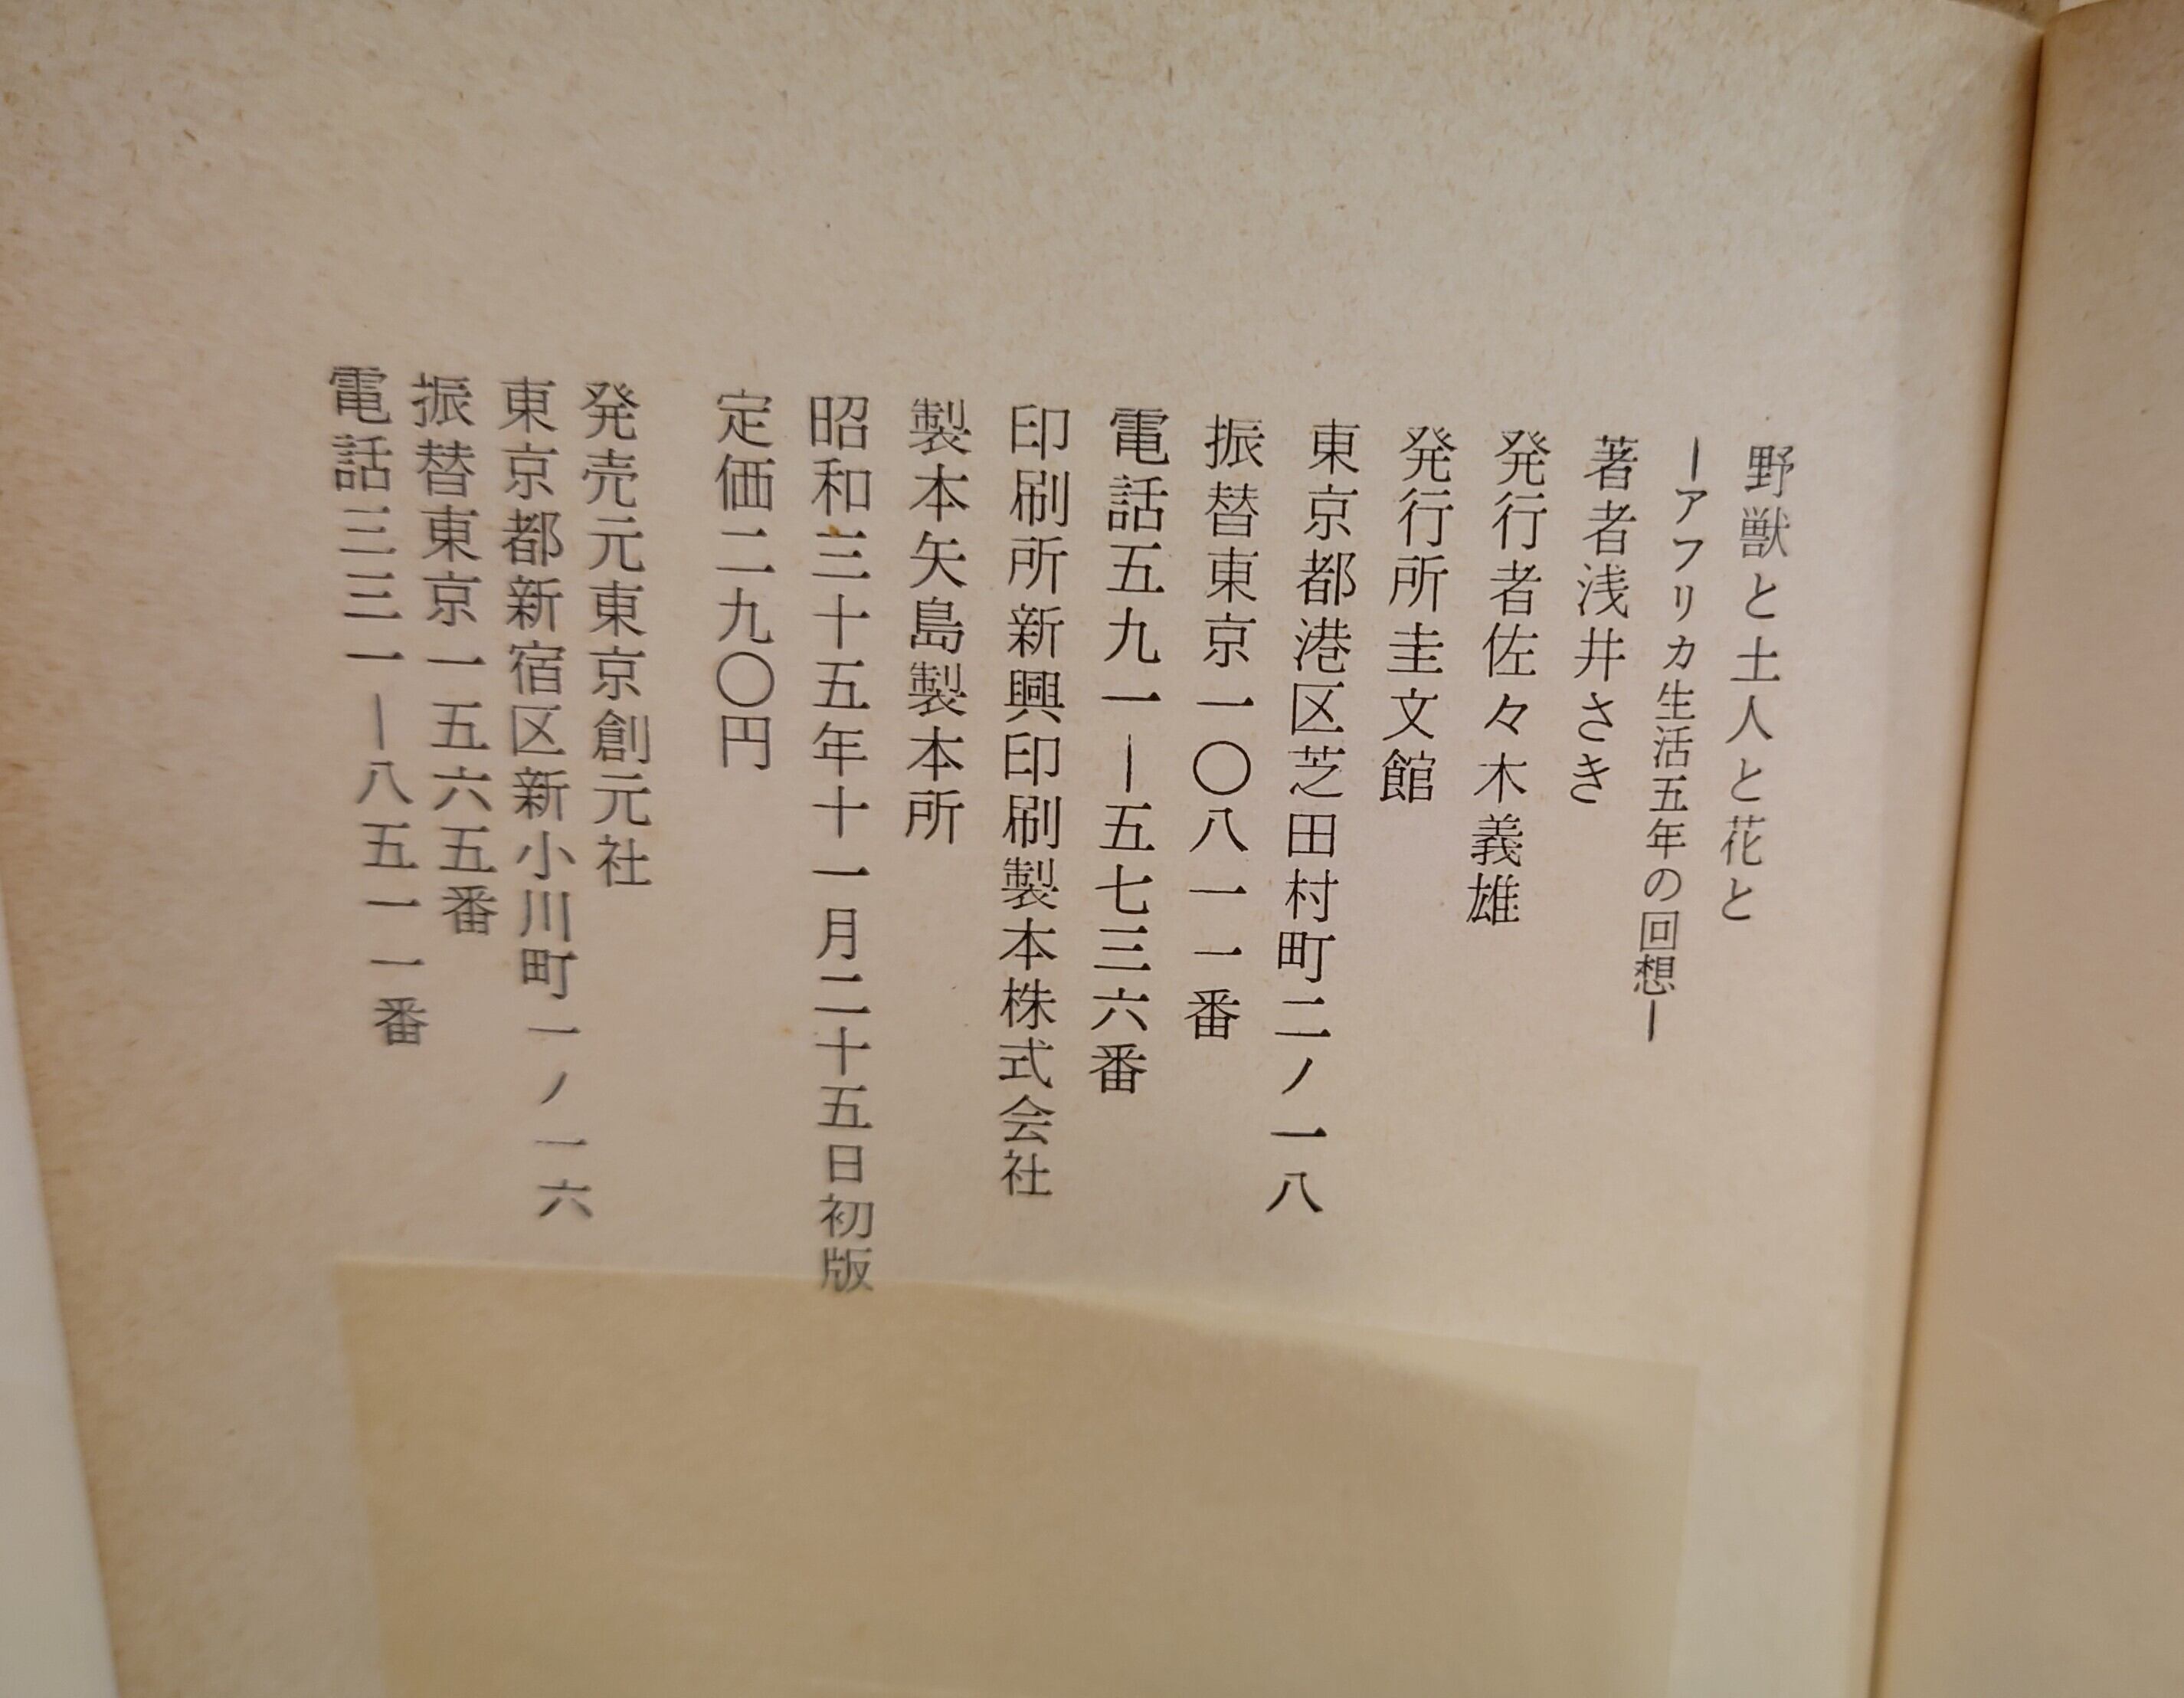 野獣と土人と花と
ーアフリカ生活五年の回想ー
著者浅井さき
発行者佐々木義雄
発行所圭文館
東京都港区芝田村町二ノ一八
振替東京一〇八一一番
電話五九一ー五七三六番
印刷所新興印刷製本株式会社
製本矢島製本所
昭和三十五年十一月二十五日初版
定価二九〇円
発売元東京創元社
東京都新宿区新小川町一ノ一六
振替東京一五六五番
電話三三一ー八五一一番